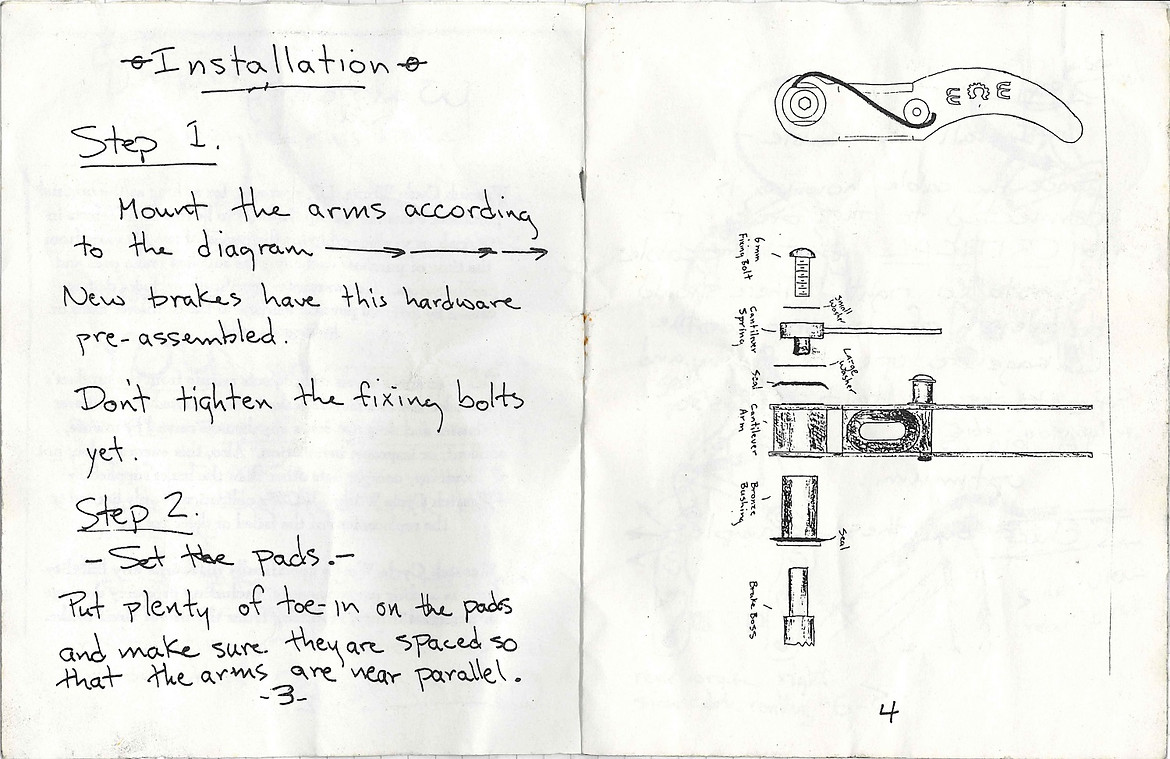 Installation
Step 1.
Mount the arms according
to the diagram
New brakes have this hardware
pre-assembled.
Don't tighten the fixing bolts
yet.
Step 2.
- Set the pads. -
Put plenty of toe-in on the pads
and make sure they are spaced so
that the arms are near parallel.
-3-
6mm
Fixing Bolt
Small
Washer
Cantilever
Spring
Large
Washer
Seal
Cantilever
Arm
Bronze
Bushing
Seal
Brake Boss
4